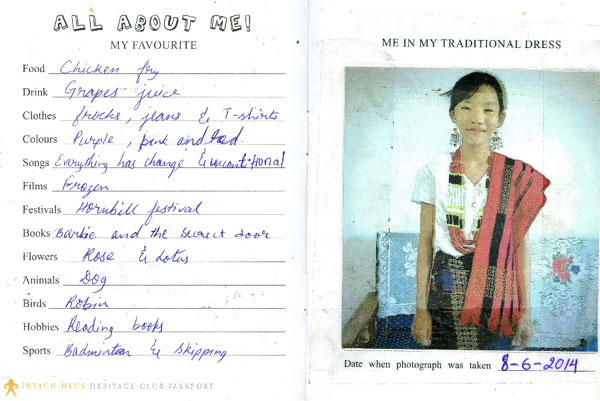 ALL ABOUT ME!
MY FAVOURITE
Food Chicken fry
Drink Grapes juice
Clothes frocks, jeans & T-shirts
Colours Purple, pink and red.
Songs Everything has change & uncontitional
Films Frozen
Festivals Hornbill festival
Books Barbie and the secret door
Flowers Rose & Lotus
Animals Dog
Birds Robin
Hobbies Reading books
Sports Badminton & skipping
INTACH HECS HERITAGE CLUB PASSPORT
ME IN MY TRADITIONAL DRESS
Date when photograph was taken 8-6-2014